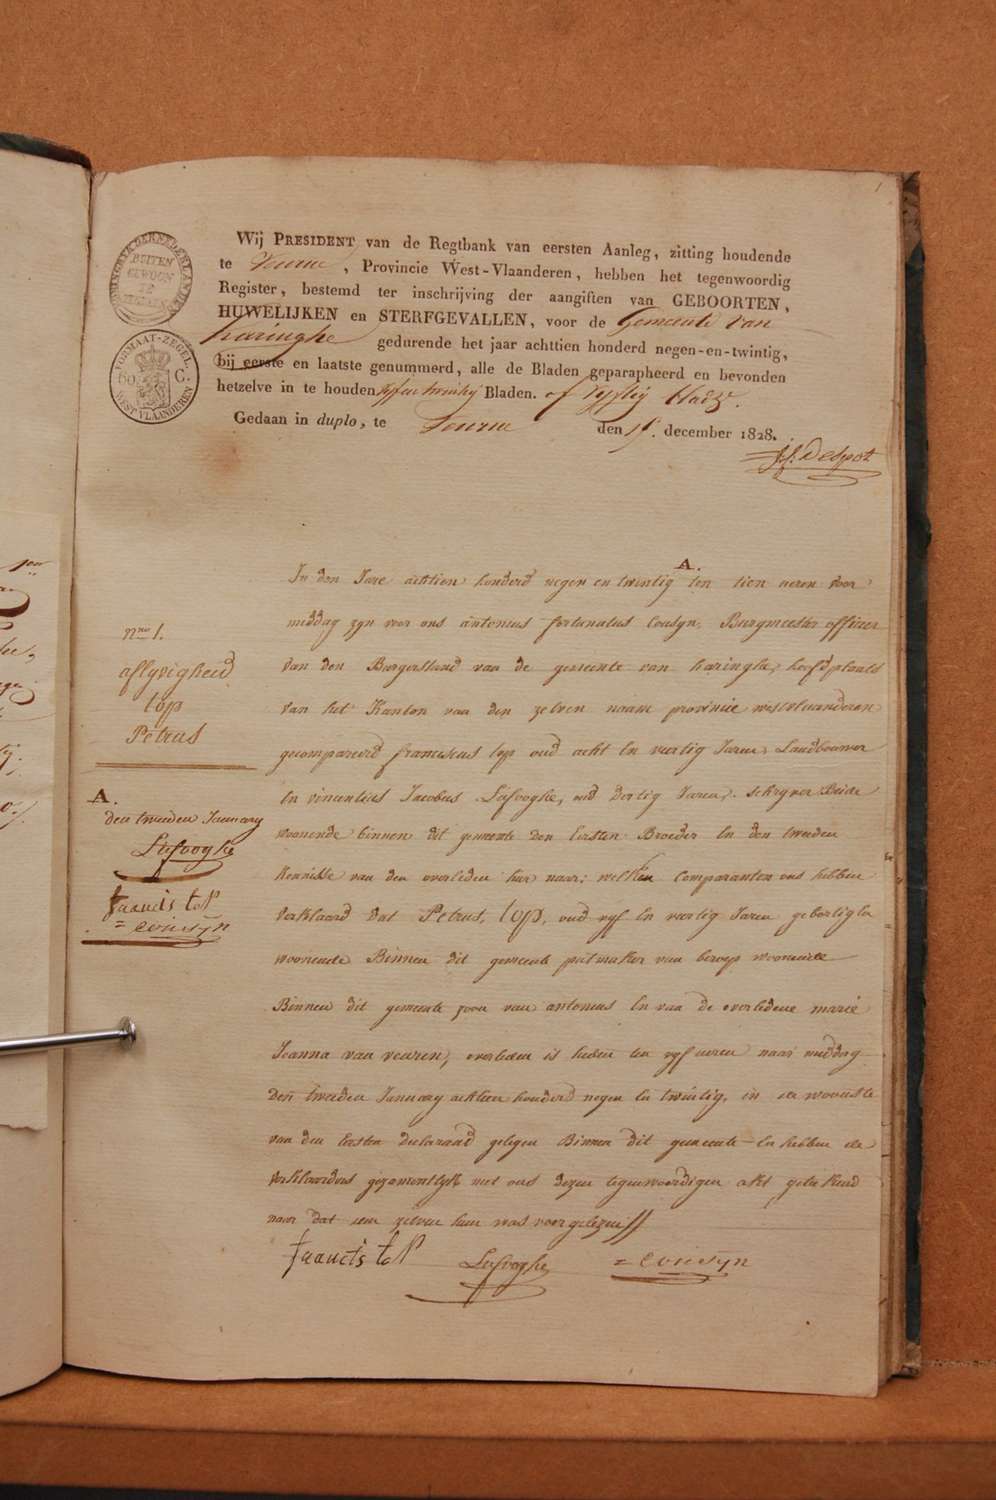 1
KONINGRYK DER NEDERLANDEN
BUITEN
GEWOON
FORMAAT-ZEGEL.
60 C.
WEST VLAANDEREN
Wij PRESIDENT van de Regtbank van eersten Aanleg, zitting houdende
te Veurne, Provincie West-Vlaanderen, hebben het tegenwoordig
Register, bestemd ter inschrijving der aangiften van GEBOORTEN,
HUWELIJKEN en STERFGEVALLEN, voor de Gemeente van
haringhe gedurende het jaar achttien honderd negen-en-twintig,
bij eerste en laatste genummerd, alle de Bladen geparapheerd en bevonden
hetzelve in te houden Bladen.
Gedaan in duplo, te Veurne den 15. december 1828.
A.
In den Jare achtien honderd negen en twintig ten tien uren voor
middag zyn voor ons antonius fortunatus Cousyn, Burgmeester officier
van den Borgerstand van de gemeente van haringhe, hoofdplaats
van het Kanton van den zelven naam provincie westvlaanderen
gecompareerd franciscus top oud acht en veertig Jaren, Landbouwer
En vincentius Jacobus Lafooghe, oud dertig Jaren, schryver Beide
woonende binnen dit gemeente den Eersten Broeder En den tweeden
Kennisse van den overleden hier naar; welken Comparanten ons hebben
verklaard dat Petrus, top, oud vyf En veertig Jaren gebortigh
woonende Binnen dit gemeente putmaker van beroep woonende
Binnen dit gemeente zoon van antonius En van de overledene marie
Joanna van veuren, overleden is heden ten vyf uren naar middag
den tweeden January achtien honderd negen En twintig, in de wooninge
van den Eersten declarand gelegen Binnen dit gemeente En hebben de
verklaarders gezamentlyk met ons dezen tegenwoordigen akt geteekend
naer dat aen zelven hun was voorgelezen
francis toP Lafooghe = Cousyn
nro 1.
aflyvigheid
top
Petrus
A.
den tweeden January
Lafooghe
francis toP
= Cousyn